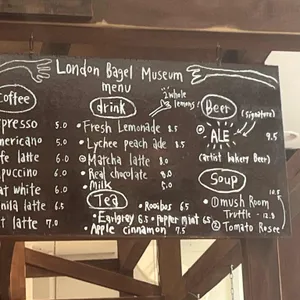 London Bagel Museum
menu
coffee
presso 5.0
ericano 5.0
fe latte 6.0
ppuccino 6.0
at white 6.0
nila latte 6.5
t latte 7.0
drink
2 whole
lemons!
• Fresh Lemonade 8.5
• Lychee peach ade 8.5
Matcha latte 8.0
• Real chocolate 8.0
• Milk 5.0
Tea
• Earlgrey 6.5
• Rooibos 6.5
• Pepper mint 6.5
• Apple cinnamon 7.5
Beer
(signature)
ALE 9.5
(artist bakery Beer)
Soup
12.5
① mush Room
Truffle - 12.8
② Tomato Rosee